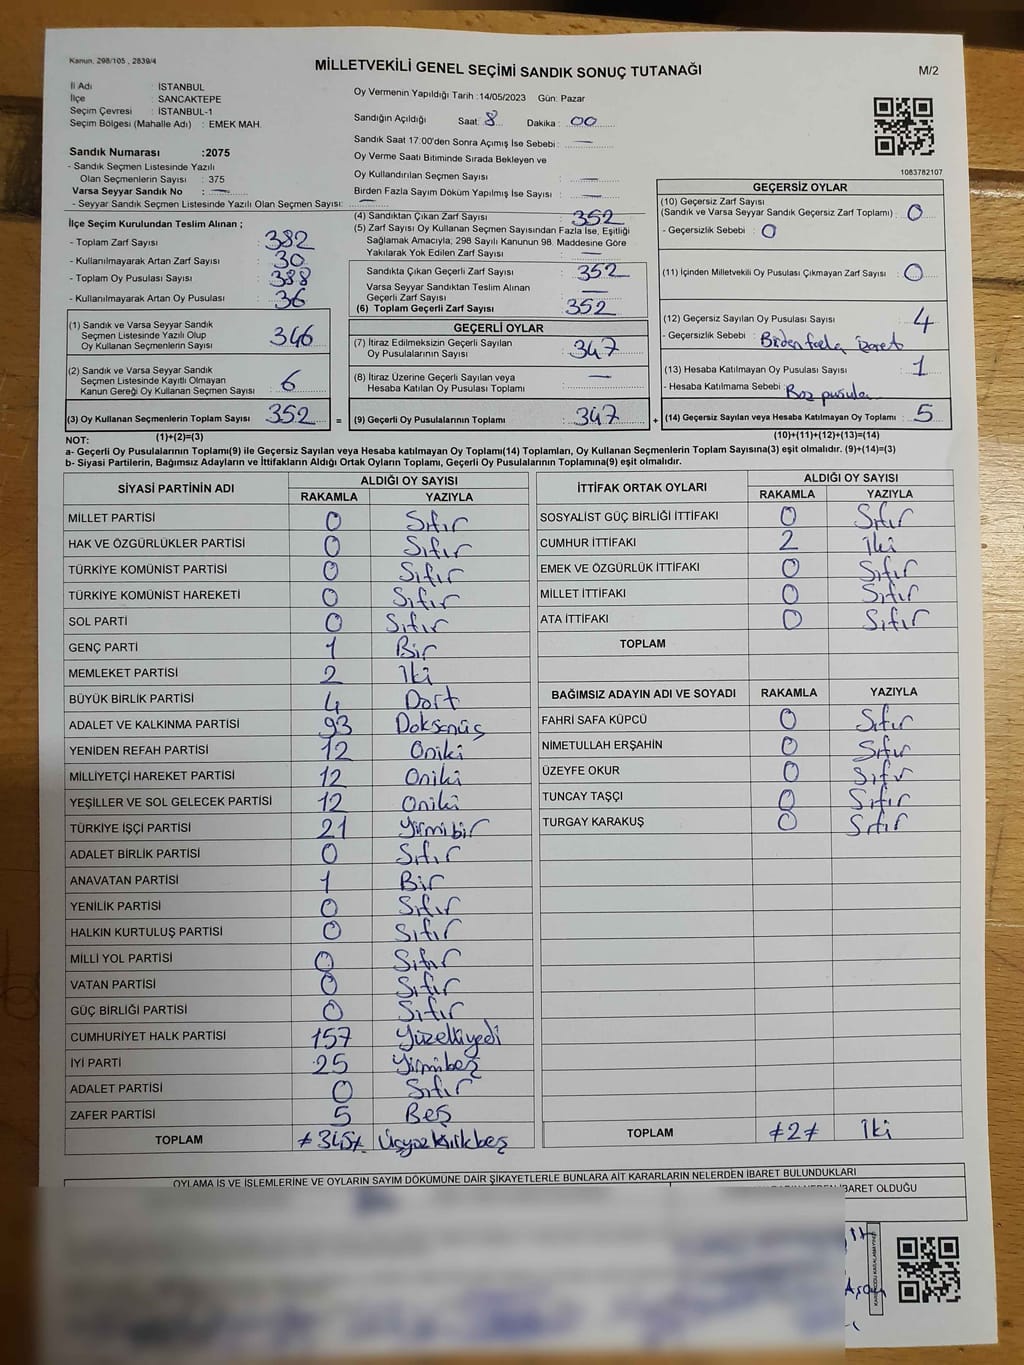 Kanun. 298/105 , 2839/4
MİLLETVEKİLİ GENEL SEÇİMİ SANDIK SONUÇ TUTANAĞI
M/2
İl Adı : İSTANBUL
İlçe : SANCAKTEPE
Seçim Çevresi : İSTANBUL-1
Seçim Bölgesi (Mahalle Adı) : EMEK MAH.
Sandık Numarası :2075
- Sandık Seçmen Listesinde Yazılı
Olan Seçmenlerin Sayısı : 375
Varsa Seyyar Sandık No : —
- Seyyar Sandık Seçmen Listesinde Yazılı Olan Seçmen Sayısı: —
Oy Vermenin Yapıldığı Tarih :14/05/2023 Gün: Pazar
Sandığın Açıldığı Saat: 8 Dakika : 00
Sandık Saat 17:00'den Sonra Açımış İse Sebebi : —
Oy Verme Saati Bitiminde Sırada Bekleyen ve
Oy Kullandırılan Seçmen Sayısı : —
Birden Fazla Sayım Döküm Yapılmış İse Sayısı : —
1083782107
İlçe Seçim Kurulundan Teslim Alınan ;
- Toplam Zarf Sayısı : 382
- Kullanılmayarak Artan Zarf Sayısı : 30
- Toplam Oy Pusulası Sayısı : 388
- Kullanılmayarak Artan Oy Pusulası : 36
(1) Sandık ve Varsa Seyyar Sandık
Seçmen Listesinde Yazılı Olup
Oy Kullanan Seçmenlerin Sayısı : 346
(2) Sandık ve Varsa Seyyar Sandık
Seçmen Listesinde Kayıtlı Olmayan
Kanun Gereği Oy Kullanan Seçmen Sayısı : 6
(3) Oy Kullanan Seçmenlerin Toplam Sayısı : 352 =
(4) Sandıktan Çıkan Zarf Sayısı : 352
(5) Zarf Sayısı Oy Kullanan Seçmen Sayısından Fazla İse, Eşitliği
Sağlamak Amacıyla; 298 Sayılı Kanunun 98. Maddesine Göre
Yakılarak Yok Edilen Zarf Sayısı : —
Sandıkta Çıkan Geçerli Zarf Sayısı : 352
Varsa Seyyar Sandıktan Teslim Alınan
Geçerli Zarf Sayısı : —
(6) Toplam Geçerli Zarf Sayısı : 352
GEÇERLİ OYLAR
(7) İtiraz Edilmeksizin Geçerli Sayılan
Oy Pusulalarının Sayısı : 347
(8) İtiraz Üzerine Geçerli Sayılan veya
Hesaba Katılan Oy Pusulası Toplamı : —
(9) Geçerli Oy Pusulalarının Toplamı : 347 +
GEÇERSİZ OYLAR
(10) Geçersiz Zarf Sayısı
(Sandık ve Varsa Seyyar Sandık Geçersiz Zarf Toplamı) : 0
- Geçersizlik Sebebi : 0
(11) İçinden Milletvekili Oy Pusulası Çıkmayan Zarf Sayısı : 0
(12) Geçersiz Sayılan Oy Pusulası Sayısı : 4
- Geçersizlik Sebebi : Birden fazla işaret
(13) Hesaba Katılmayan Oy Pusulası Sayısı : 1
- Hesaba Katılmama Sebebi : Boz pusula
(14) Geçersiz Sayılan veya Hesaba Katılmayan Oy Toplamı : 5
NOT: (1)+(2)=(3) (10)+(11)+(12)+(13)=(14)
a- Geçerli Oy Pusulalarının Toplamı(9) ile Geçersiz Sayılan veya Hesaba katılmayan Oy Toplamı(14) Toplamları, Oy Kullanan Seçmenlerin Toplam Sayısına(3) eşit olmalıdır. (9)+(14)=(3)
b- Siyasi Partilerin, Bağımsız Adayların ve İttifakların Aldığı Ortak Oyların Toplamı, Geçerli Oy Pusulalarının Toplamına(9) eşit olmalıdır.
SİYASİ PARTİNİN ADI ALDIĞI OY SAYISI
RAKAMLA YAZIYLA
MİLLET PARTİSİ 0 Sıfır
HAK VE ÖZGÜRLÜKLER PARTİSİ 0 Sıfır
TÜRKİYE KOMÜNİST PARTİSİ 0 Sıfır
TÜRKİYE KOMÜNİST HAREKETİ 0 Sıfır
SOL PARTİ 0 Sıfır
GENÇ PARTİ 1 Bir
MEMLEKET PARTİSİ 2 İki
BÜYÜK BİRLİK PARTİSİ 4 Dört
ADALET VE KALKINMA PARTİSİ 93 Doksanüç
YENİDEN REFAH PARTİSİ 12 Oniki
MİLLİYETÇİ HAREKET PARTİSİ 12 Oniki
YEŞİLLER VE SOL GELECEK PARTİSİ 12 Oniki
TÜRKİYE İŞÇİ PARTİSİ 21 Yirmibir
ADALET BİRLİK PARTİSİ 0 Sıfır
ANAVATAN PARTİSİ 1 Bir
YENİLİK PARTİSİ 0 Sıfır
HALKIN KURTULUŞ PARTİSİ 0 Sıfır
MİLLİ YOL PARTİSİ 0 Sıfır
VATAN PARTİSİ 0 Sıfır
GÜÇ BİRLİĞİ PARTİSİ 0 Sıfır
CUMHURİYET HALK PARTİSİ 157 Yüzelliyedi
İYİ PARTİ 25 Yirmibeş
ADALET PARTİSİ 0 Sıfır
ZAFER PARTİSİ 5 Beş
TOPLAM ≠345≠ Üçyüzkırkbeş
İTTİFAK ORTAK OYLARI ALDIĞI OY SAYISI
RAKAMLA YAZIYLA
SOSYALİST GÜÇ BİRLİĞİ İTTİFAKI 0 Sıfır
CUMHUR İTTİFAKI 2 İki
EMEK VE ÖZGÜRLÜK İTTİFAKI 0 Sıfır
MİLLET İTTİFAKI 0 Sıfır
ATA İTTİFAKI 0 Sıfır
TOPLAM
BAĞIMSIZ ADAYIN ADI VE SOYADI RAKAMLA YAZIYLA
FAHRİ SAFA KÜPCÜ 0 Sıfır
NİMETULLAH ERŞAHİN 0 Sıfır
ÜZEYFE OKUR 0 Sıfır
TUNCAY TAŞÇI 0 Sıfır
TURGAY KARAKUŞ 0 Sıfır
TOPLAM ≠2≠ İki
OYLAMA İŞ VE İŞLEMLERİNE VE OYLARIN SAYIM DÖKÜMÜNE DAİR ŞİKAYETLERLE BUNLARA AİT KARARLARIN NELERDEN İBARET BULUNDUKLARI
NEDEN İBARET OLDUĞU